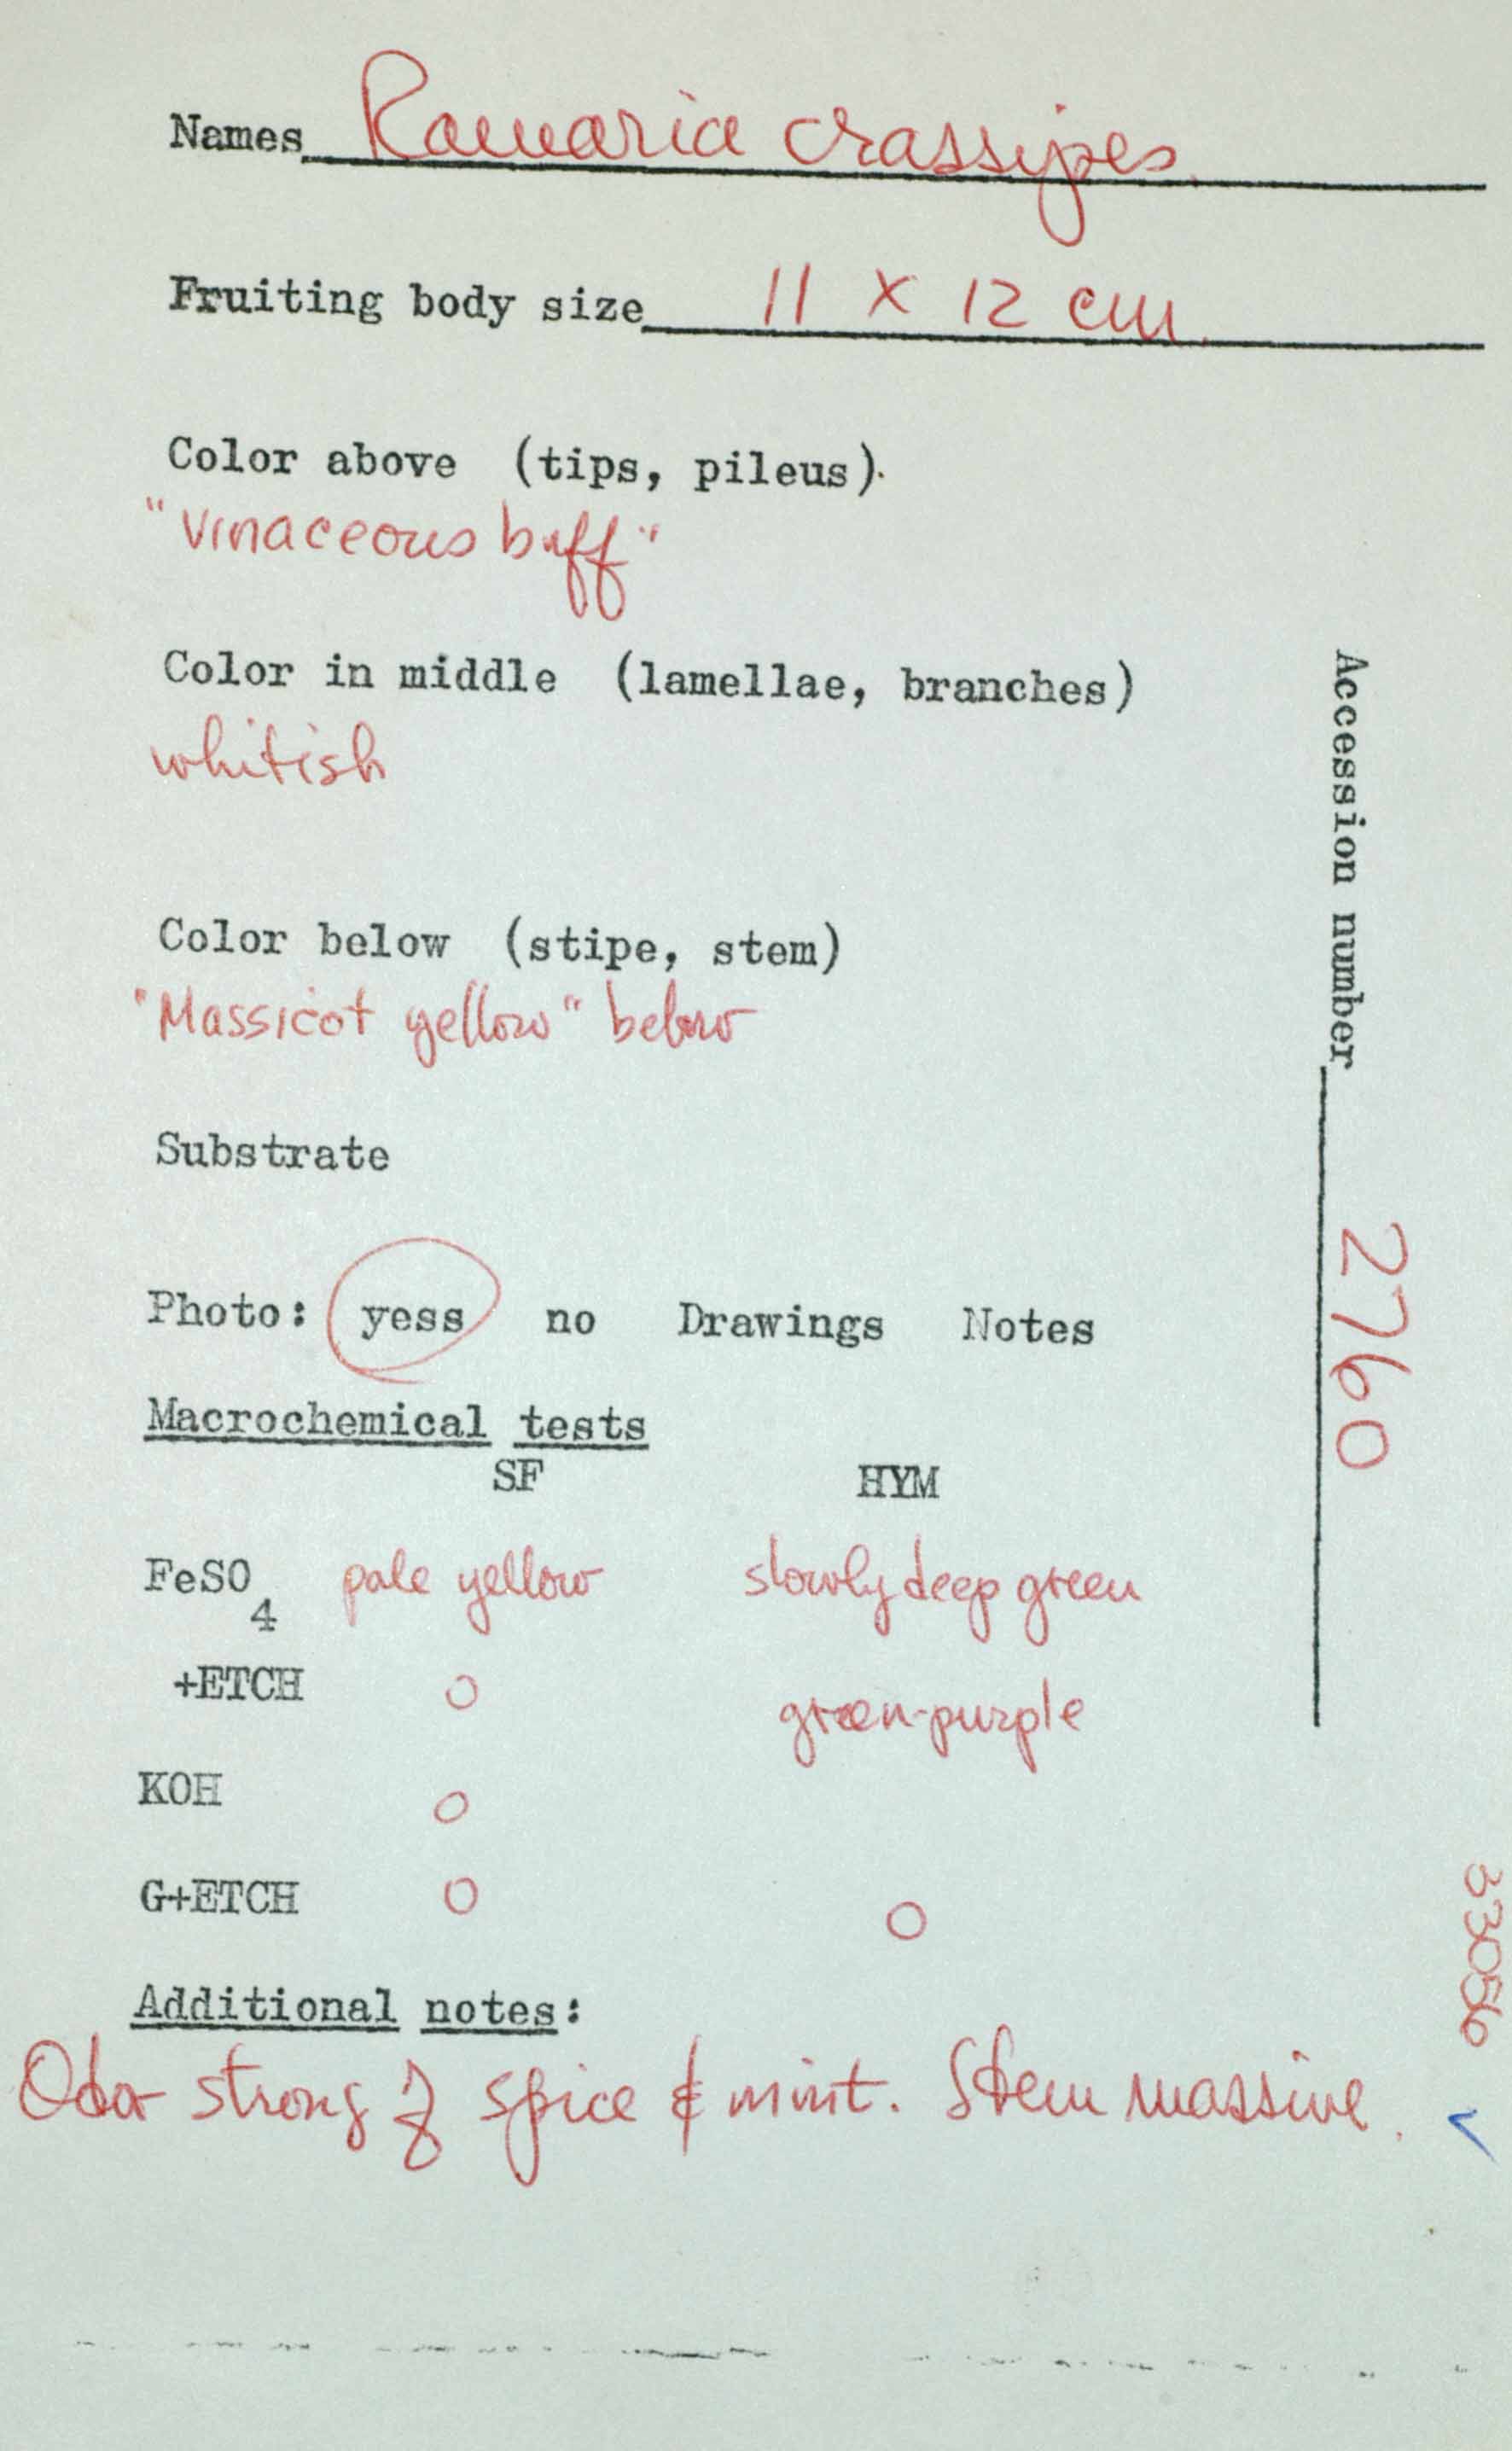 Names Ramaria crassipes.
Fruiting body size 11 x 12 cm.
Color above (tips, pileus).
"Vinaceous buff"
Color in middle (lamellae, branches)
whitish
Color below (stipe, stem)
"Massicot yellow" below
Substrate
Photo: yess no Drawings Notes
Macrochemical tests
SF HYM
FeSO4 pale yellow slowly deep green
+ETCH O green-purple
KOH O
G+ETCH O O
Additional notes:
Odor strong of spice & mint. Stem massive.
Accession number 2760
33056